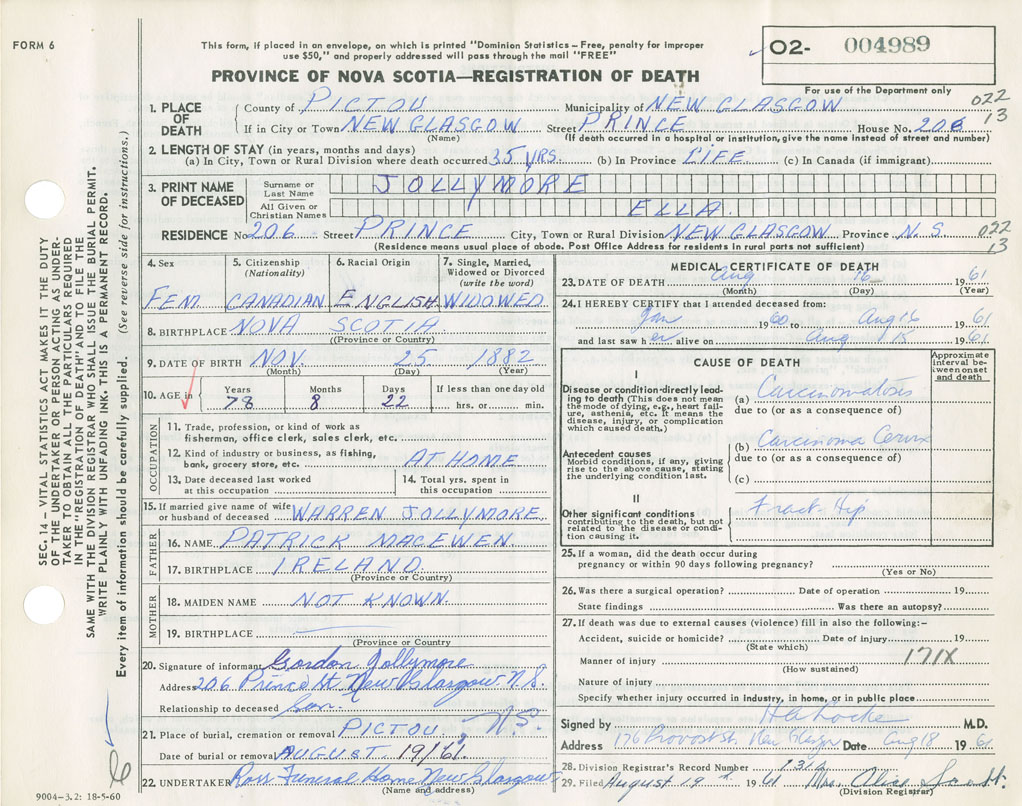 FORM 6
This form, if placed in an envelope, on which is printed "Dominion Statistics – Free, penalty for improper
use $50," and properly addressed will pass through the mail "FREE"
PROVINCE OF NOVA SCOTIA—REGISTRATION OF DEATH
02- 004989
For use of the Department only
022
13
1. PLACE OF DEATH
County of PICTOU Municipality of NEW GLASGOW
If in City or Town NEW GLASGOW Street PRINCE House No. 206
(Name) (If death occurred in a hospital or institution, give the name instead of street and number)
2. LENGTH OF STAY (in years, months and days)
(a) In City, Town or Rural Division where death occurred 35 YRS. (b) In Province LIFE (c) In Canada (if immigrant)
3. PRINT NAME OF DECEASED
Surname or Last Name JOLLYMORE
All Given or Christian Names ELLA.
RESIDENCE No 206 Street PRINCE City, Town or Rural Division NEW GLASGOW Province N.S. 022
13
(Residence means usual place of abode. Post Office Address for residents in rural parts not sufficient)
4. Sex 5. Citizenship (Nationality) 6. Racial Origin 7. Single, Married, Widowed or Divorced (write the word)
FEM. CANADIAN ENGLISH WIDOWED
8. BIRTHPLACE NOVA SCOTIA
(Province or Country)
9. DATE OF BIRTH NOV. 25 1882
(Month) (Day) (Year)
10. AGE in Years Months Days If less than one day old
78 8 22 hrs. or min.
OCCUPATION
11. Trade, profession, or kind of work as
fisherman, office clerk, sales clerk, etc.
12. Kind of industry or business, as fishing,
bank, grocery store, etc. AT HOME
13. Date deceased last worked at this occupation 14. Total yrs. spent in this occupation
15. If married give name of wife
or husband of deceased WARREN JOLLYMORE
FATHER
16. NAME PATRICK MACEWEN.
17. BIRTHPLACE IRELAND.
(Province or Country)
MOTHER
18. MAIDEN NAME NOT KNOWN.
19. BIRTHPLACE
(Province or Country
20. Signature of informant Gordon Jollymore
Address 206 Prince St. New Glasgow N.S.
Relationship to deceased Son -
21. Place of burial, cremation or removal PICTOU, N.S.
Date of burial or removal AUGUST 19/61.
22. UNDERTAKER Ross Funeral Home New Glasgow
(Name and address)
MEDICAL CERTIFICATE OF DEATH
23. DATE OF DEATH Aug 16 1961
(Month) (Day) (Year)
24. I HEREBY CERTIFY that I attended deceased from:
Jan 1960 to Aug 16 1961
and last saw her alive on Aug 15 1961
CAUSE OF DEATH
Approximate interval between onset and death
I
Disease or condition directly leading to death (This does not mean the mode of dying, e.g., heart failure, asthenia, etc. It means the disease, injury, or complication which caused death.)
(a) Carcinomatosis
due to (or as a consequence of)
Antecedent causes
Morbid conditions, if any, giving rise to the above cause, stating the underlying condition last.
(b) Carcinoma Cervix
due to (or as a consequence of)
(c)
II
Other significant conditions
contributing to the death, but not related to the disease or condition causing it.
Fract Hip
25. If a woman, did the death occur during
pregnancy or within 90 days following pregnancy?
(Yes or No)
26. Was there a surgical operation? Date of operation 19
State findings Was there an autopsy?
27. If death was due to external causes (violence) fill in also the following:-
Accident, suicide or homicide? Date of injury 19
(State which)
Manner of injury 171X
(How sustained)
Nature of injury
Specify whether injury occurred in Industry, in home, or in public place
Signed by H A Locke M.D.
Address 176 Provost St. New Glasgow Date Aug 18 1961
28. Division Registrar's Record Number
29. Filed August 19th 1961 Mrs. Alice Scott.
(Division Registrar)
SEC. 14 – VITAL STATISTICS ACT MAKES IT THE DUTY
OF THE UNDERTAKER OR PERSON ACTING AS UNDER-
TAKER TO OBTAIN ALL THE PARTICULARS REQUIRED
IN THE "REGISTRATION OF DEATH" AND TO FILE THE
SAME WITH THE DIVISION REGISTRAR WHO SHALL ISSUE THE BURIAL PERMIT.
WRITE PLAINLY WITH UNFADING INK. THIS IS A PERMANENT RECORD.
Every item of information should be carefully supplied. (See reverse side for instructions.)
9004–3.2: 18-5-60